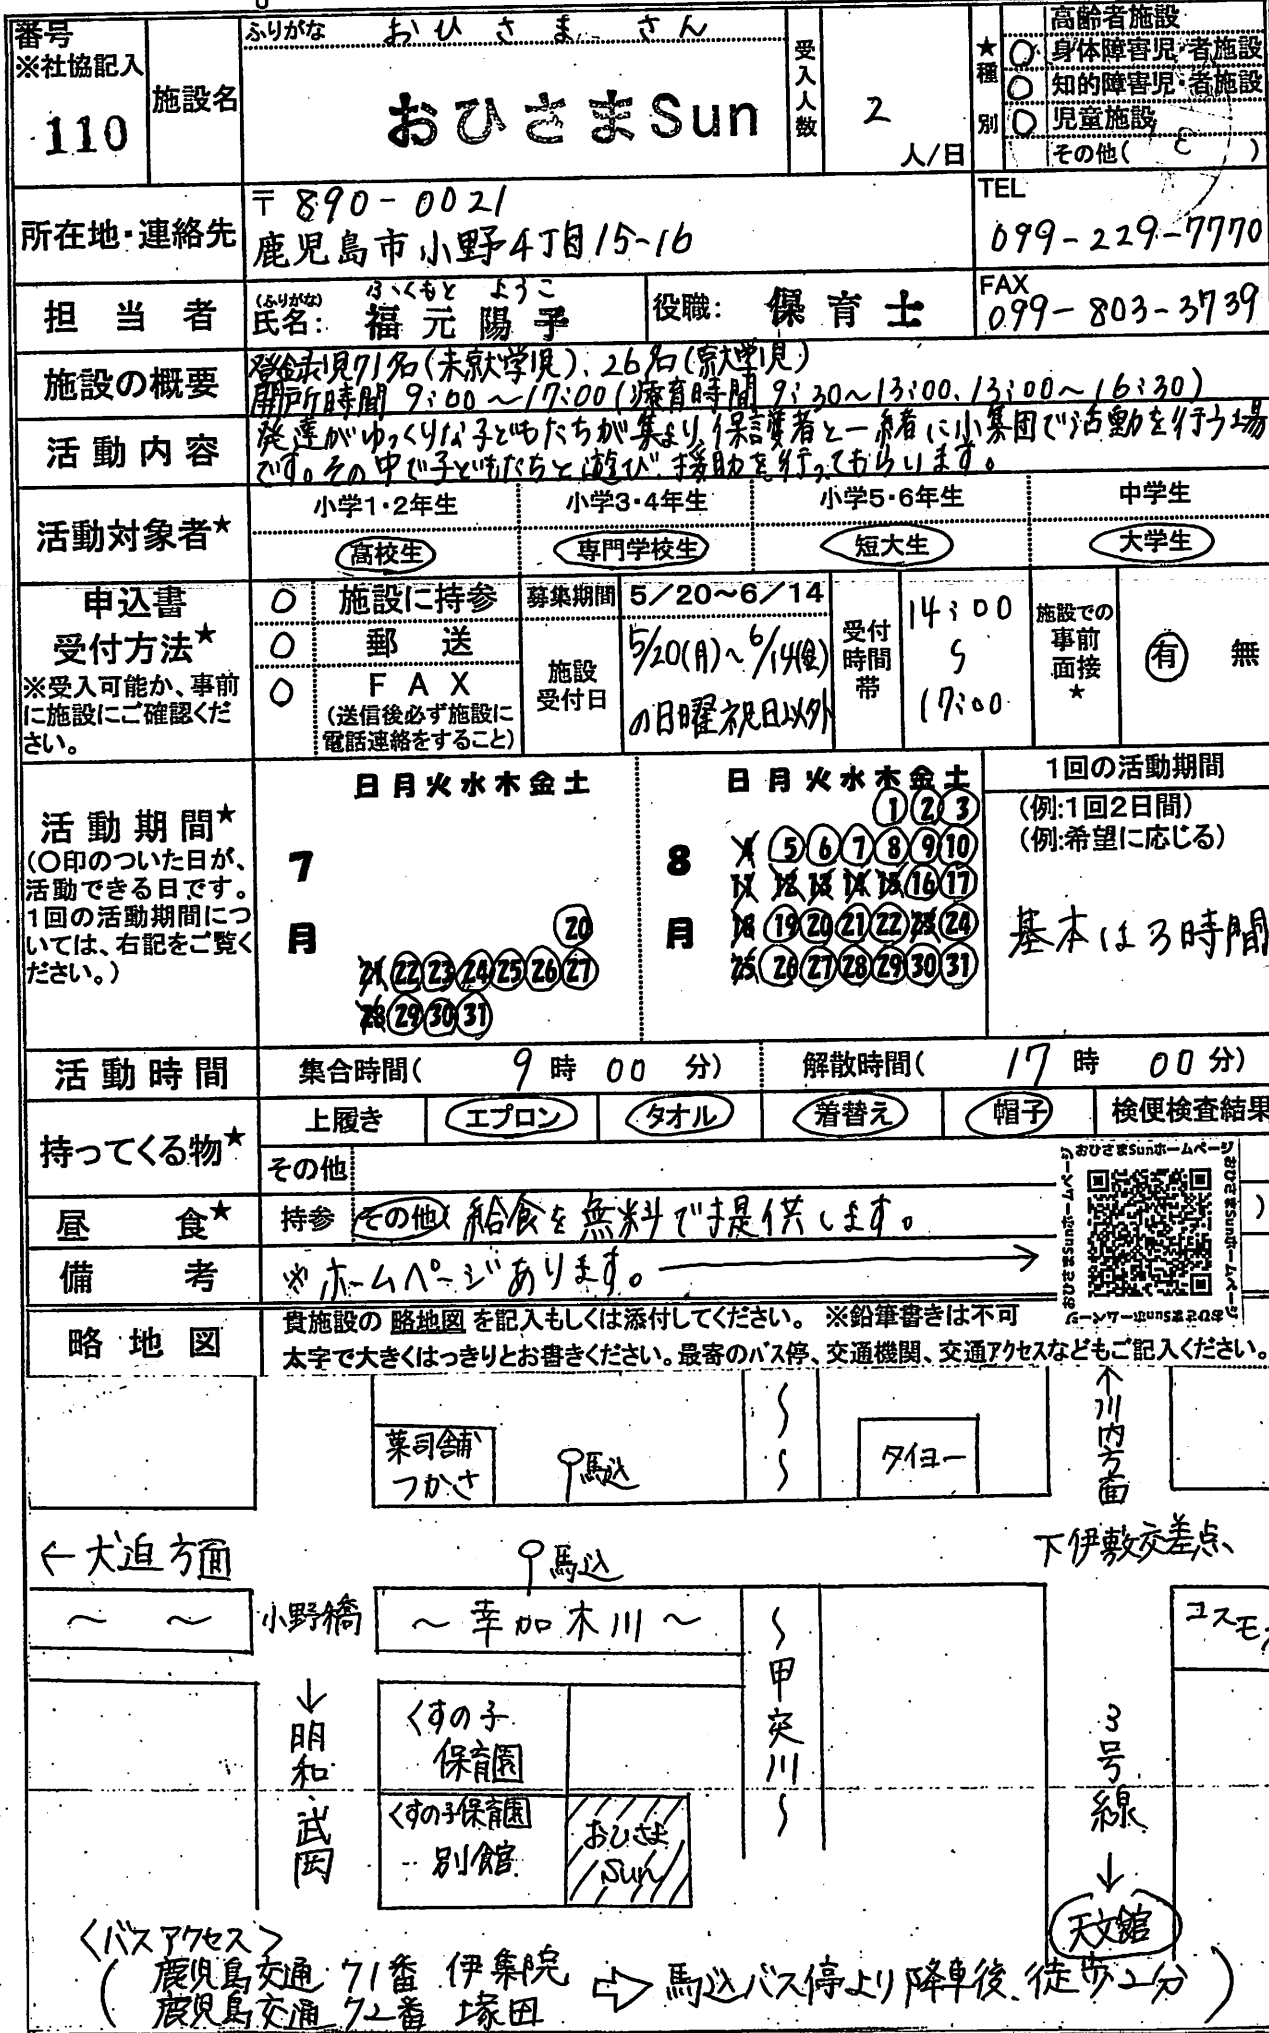 番号
※社協記入
110
施設名
ふりがな おひさま さん
おひさまSun
受入人数
2
人/日
★種別
高齢者施設
○ 身体障害児・者施設
○ 知的障害児・者施設
○ 児童施設
その他( )
所在地・連絡先
〒890-0021
鹿児島市小野4丁目15-16
TEL
099-229-7770
担当者
(ふりがな) ふくもと ようこ
氏名: 福元陽子
役職: 保育士
FAX
099-803-3739
施設の概要
登録児71名(未就学児)、26名(就学児)
開所時間 9:00～17:00(療育時間 9:30～13:00、13:00～16:30)
活動内容
発達がゆっくりな子どもたちが集まり、保護者と一緒に小集団で活動を行う場
です。その中で子どもたちと遊び、援助を行ってもらいます。
活動対象者★
小学1・2年生 小学3・4年生 小学5・6年生 中学生
高校生 専門学校生 短大生 大学生
申込書
受付方法★
※受入可能か、事前
に施設にご確認くだ
さい。
○ 施設に持参
○ 郵送
○ FAX
(送信後必ず施設に
電話連絡をすること)
募集期間 5/20～6/14
施設
受付日
5/20(月)～6/14(金)
の日曜祝日以外
受付
時間
帯
14:00
〜
17:00
施設での
事前
面接
★
有 無
活動期間★
(○印のついた日が、
活動できる日です。
1回の活動期間につ
いては、右記をご覧く
ださい。)
7月
日月火水木金土
20
21 22 23 24 25 26 27
28 29 30 31
8月
日月火水木金土
1 2 3
4 5 6 7 8 9 10
11 12 13 14 15 16 17
18 19 20 21 22 23 24
25 26 27 28 29 30 31
1回の活動期間
(例:1回2日間)
(例:希望に応じる)
基本は3時間
活動時間
集合時間( 9時00分)
解散時間( 17時00分)
持ってくる物★
上履き エプロン タオル 着替え 帽子 検便検査結果
その他
おひさまSunホームページ
おひさまSunホームページ
おひさまSunホームページ
おひさまSunホームページ
昼食★
持参 その他( 給食を無料で提供します。 )
備考
※ホームページあります。→
略地図
貴施設の 略地図 を記入もしくは添付してください。 ※鉛筆書きは不可
太字で大きくはっきりとお書きください。最寄のバス停、交通機関、交通アクセスなどもご記入ください。
菓司舗
つかさ
馬込
タイヨー
↑川内方面
←犬迫方面
馬込
下伊敷交差点
～ ～
小野橋
～幸加木川～
コスモス
～甲突川～
↓明和・武岡
くすの子
保育園
くすの子保育園
別館
おひさま
Sun
3号線
↓
天文館
〈バスアクセス〉
(鹿児島交通 71番 伊集院
鹿児島交通 72番 塚田
⇨ 馬込バス停より降車後、徒歩2分)